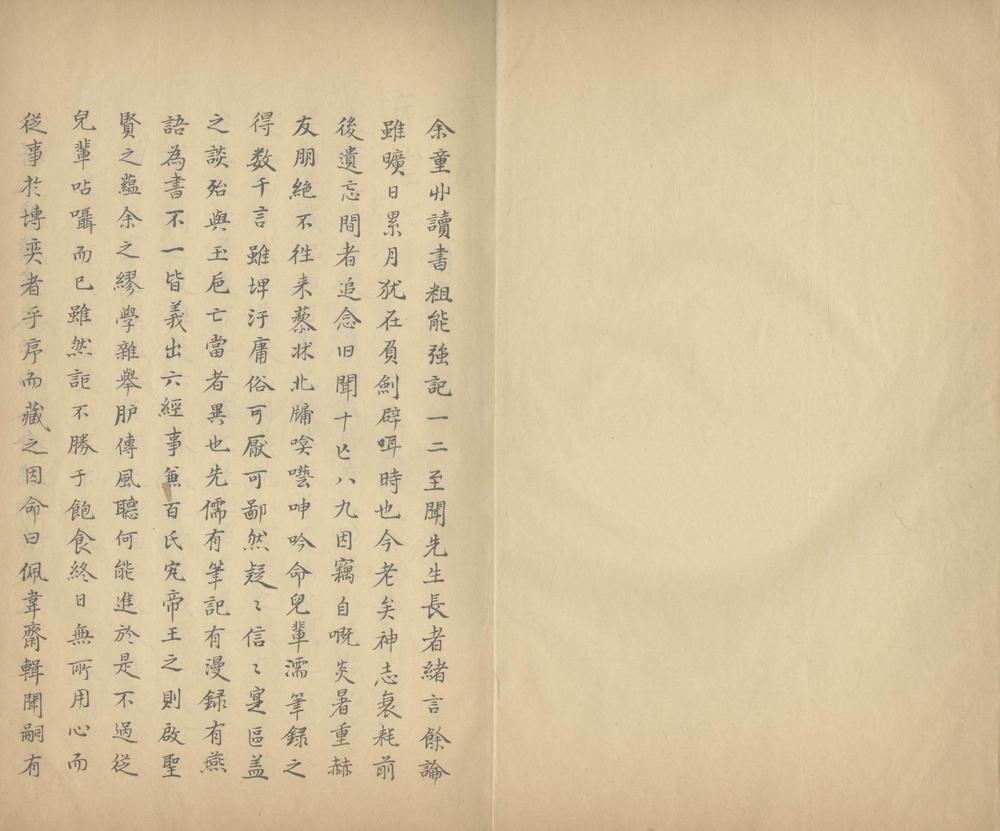 余童丱讀書粗能強記一二至聞先生長者緒言餘論
雖曠日累月犹在負劍辟咡時也今老矣神志衰耗前
後遺忘間者追念旧聞十亡八九因竊自嘅炎暑重赫
友朋絶不徃来藜牀北牖唫囈呻吟命兒軰濡筆録之
得数千言雖埤汙庸俗可厭可鄙然疑〻信〻寔區盖
之談殆與玉巵亡當者異也先儒有筆記有漫録有燕
語為書不一皆義出六經事兼百氏究帝王之則啟聖
賢之蘊余之繆學雜舉胪傳風聽何能進於是不過従
兒輩呫囁而已雖然詎不勝于飽食終日無所用心而
従事於博奕者乎序而藏之因命曰佩韋齋輯聞嗣有